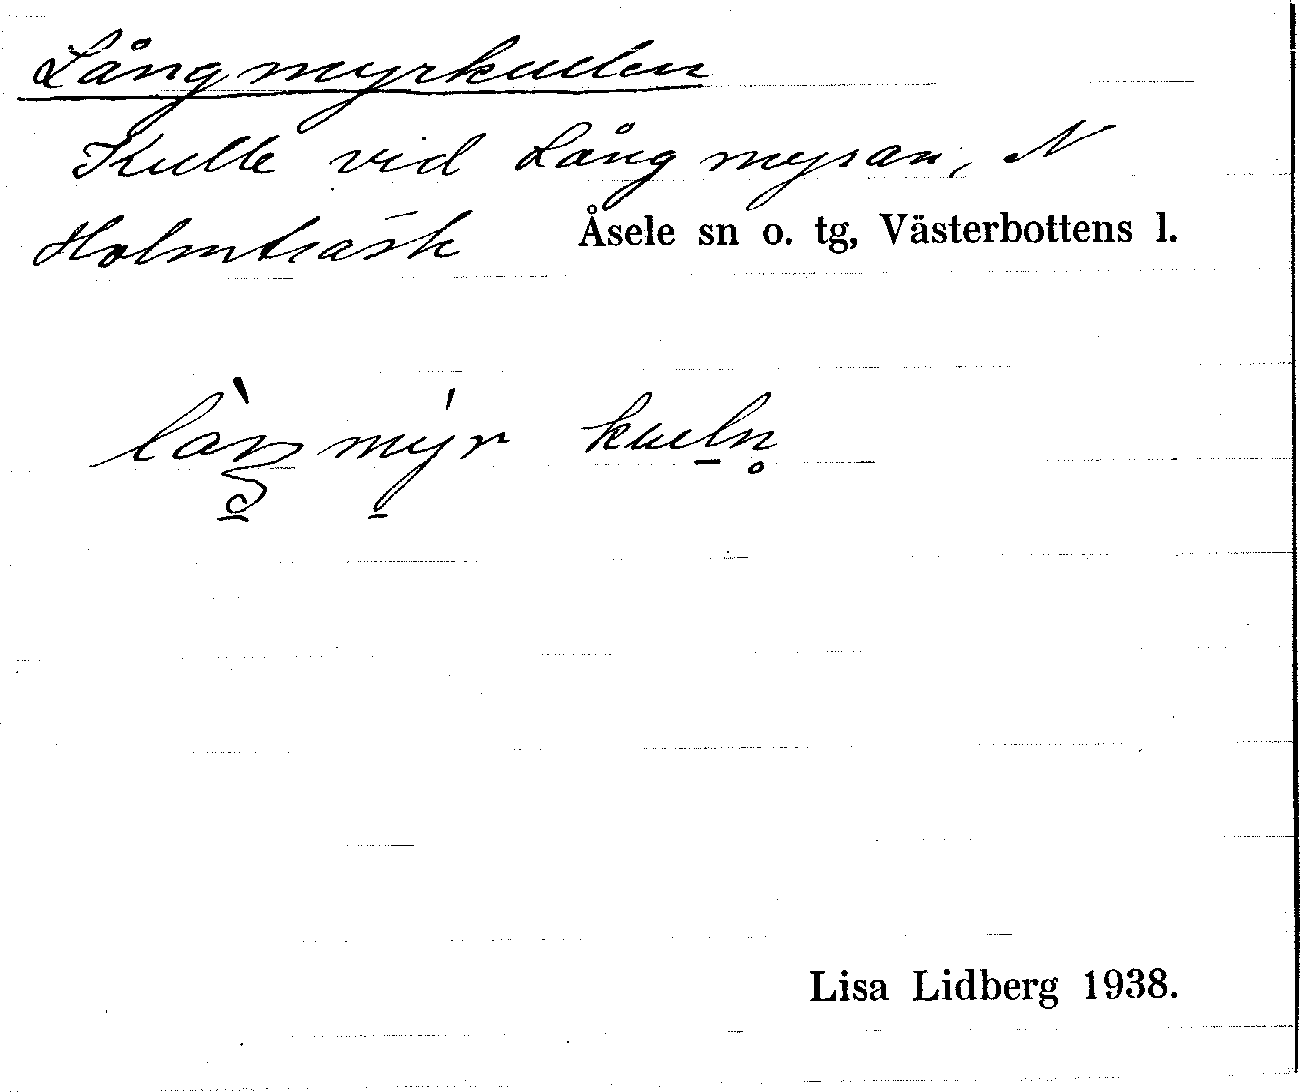 Långmyrkullen
Kulle vid Långmyran, N
Holmträsk Åsele sn o. tg, Västerbottens l.
kuln̥
Lisa Lidberg 1938.